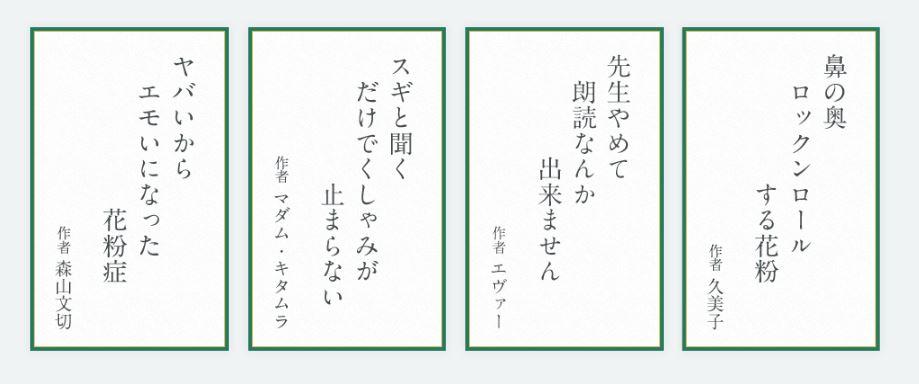 鼻の奥
ロックンロール
する花粉
作者 久美子
先生やめて
朗読なんか
出来ません
作者 エヴァー
スギと聞く
だけでくしゃみが
止まらない
作者 マダム・キタムラ
ヤバいから
エモいになった
花粉症
作者 森山文切